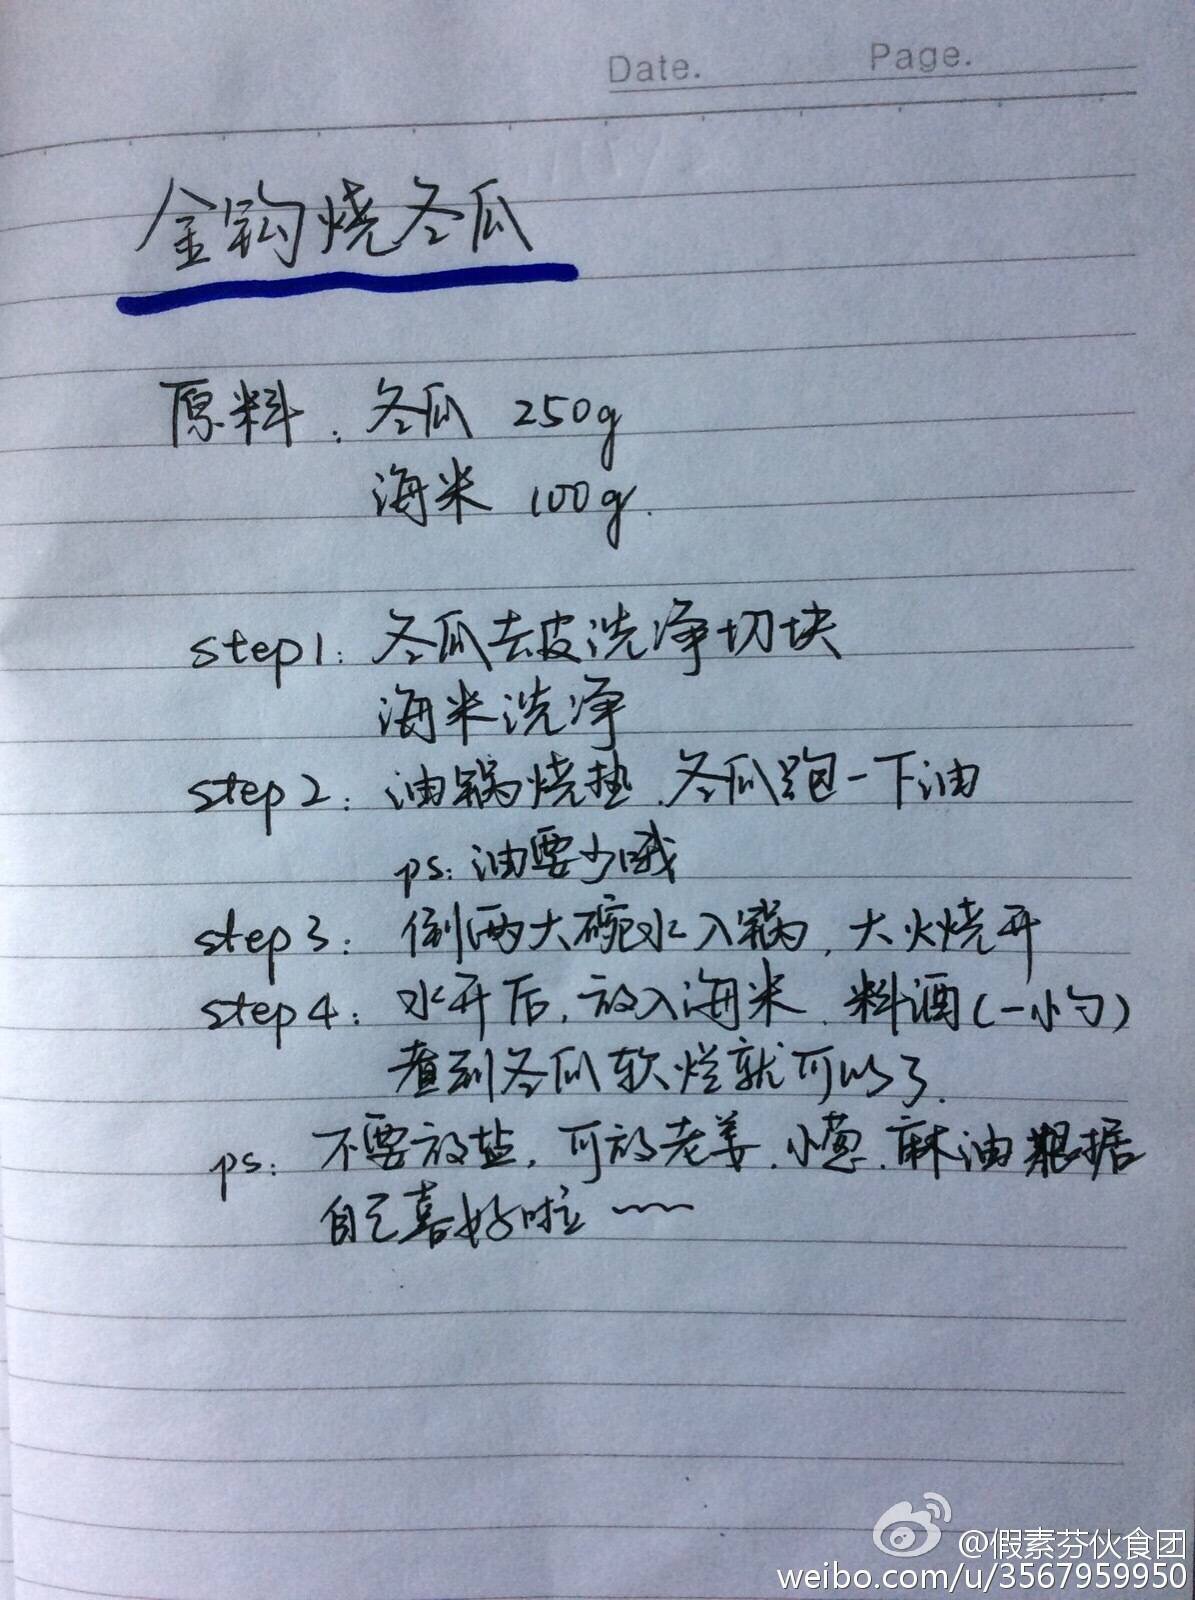 Date.
Page.
金钩烧冬瓜
原料：冬瓜 250g
海米 100g.
step1：冬瓜去皮洗净切块
海米洗净
step2：油锅烧热、冬瓜跑一下油
ps：油要少哦
step3：倒两大碗水入锅，大火烧开
step4：水开后，放入海米、料酒(一小勺)
煮到冬瓜软烂就可以了.
ps：不要放盐，可放老姜、小葱、麻油根据
自己喜好啦～～
@假素芬伙食团
weibo.com/u/3567959950